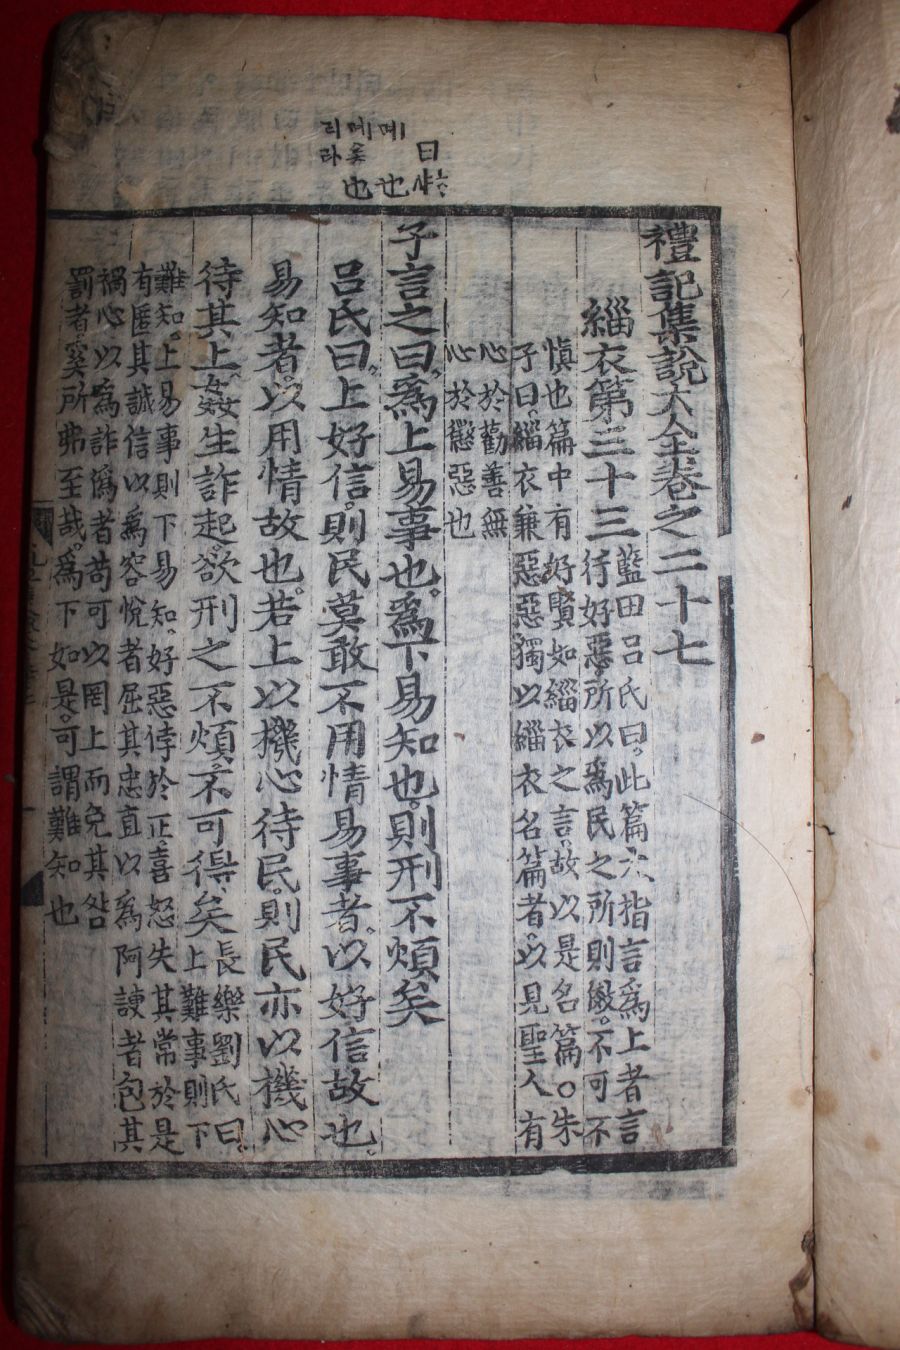 也
也
리라
禮記集說大全卷之二十七
緇衣第三十三
藍田呂氏曰。此篇六指言爲上者言
行好惡。所以爲民之所則傚。不可不
愼也篇中有好賢如緇衣之言。故以是名篇。○朱
子曰。緇衣兼惡惡獨以緇衣名篇者。以見聖人有
心於勸善無
心於懲惡也
子言之曰。爲上易事也。爲下易知也。則刑不煩矣
呂氏曰。上好信。則民莫敢不用情易事者。以好信故也。
易知者。以用情故也。若上以機心待民。則民亦以機心
待其上。姦生詐起。欲刑之不煩。不可得矣
長樂劉氏曰。
上難事則下
難知。上易事則下易知。好惡悖於正喜怒失其常於是
有匿其誠信以爲容悅者屈其忠直以爲阿諛者包其
禍心以爲詐僞者苟可以罔上而免其咎
罰者。奚所弗至哉。爲下如是。可謂難知也